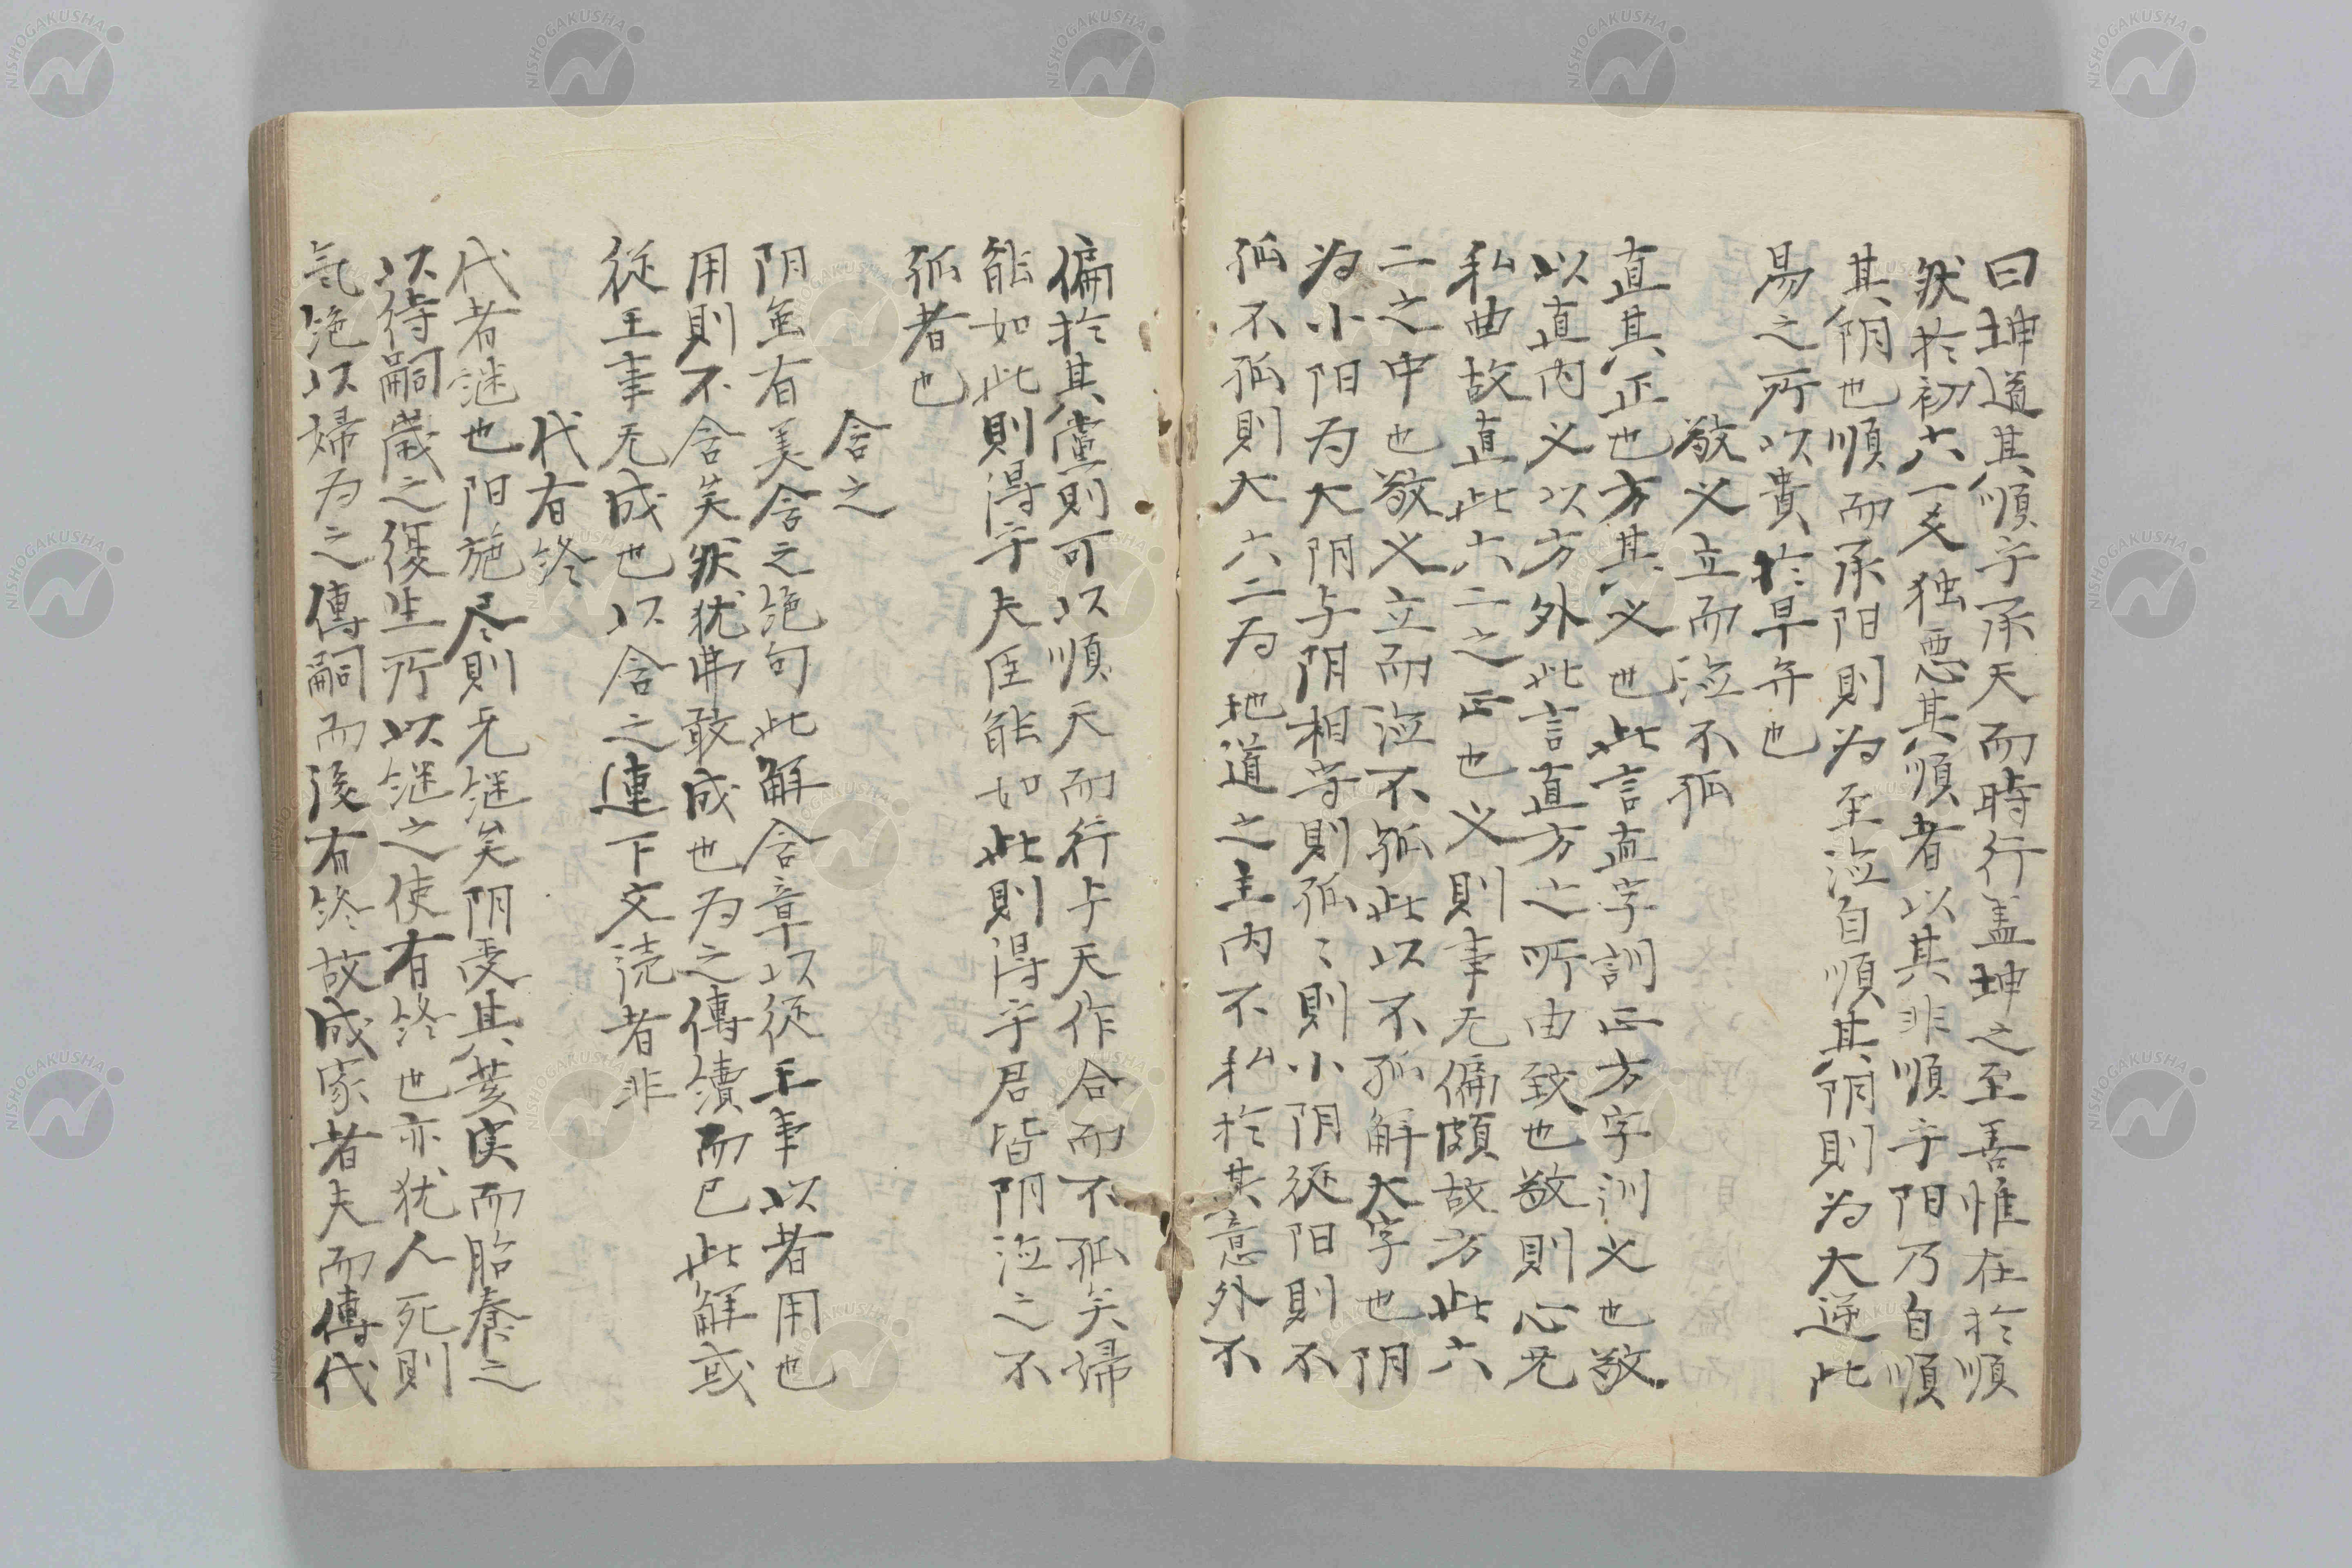 曰坤道其順乎承天而時行盖坤之至善惟在於順
然於初六一爻独悪其順者以其非順乎阳乃自順
其阴也順而承阳則为至德自順其阴則为大逆此
易之所以貴於早弁也
敬义立而德不孤
直其正也方其义也此言直字訓正方字訓义也敬
以直内义以方外此言直方之所由致也敬則心无
私曲故直此六二之正也义則事无偏頗故方此六
二之中也敬义立而德不孤此以不孤解大字也阴
为小阳为大阴与阴相与則孤〻則小阴從阳則不
孤不孤則大六二为地道之主内不私於其意外不
偏於其黨則可以順天而行与天作合而不孤矣婦
能如此則得乎夫臣能如此則得乎君皆阴德之不
孤者也
含之
阴虽有美含之绝句此解含章以從王事以者用也
用則不含矣然犹弗敢成也为之傳續而已此解或
從王事无成也以含之連下文読者非
代有终
代者继也阳施尽則无继矣阴受其荄实而胎養之
以待嗣歲之復生所以继之使有终也亦犹人死則
氣绝以婦为之傳嗣而後有终故成家者夫而傳代
NISHOGAKUSHA